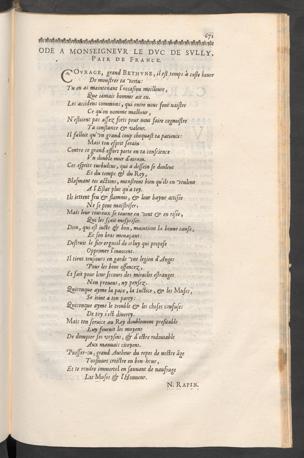 671
ODE A MONSEIGNEVR LE DVC DE SVLLY,
PAIR DE FRANCE.
COVRAGE, grand BETHVNE, il est temps à ceste heure
De monstrer ta vertu:
Tu en as maintenant l'occasion meilleure,
Que jamais homme ait eu.
Les accidens communs, qui entre nous font naistre
Ce qu'on nomme malheur,
N'estoient pas assez forts pour nous faire cognoistre
Ta constance & valeur.
Il falloit qu'un grand coup choquast ta patience:
Mais ton esprit serain
Contre ce grand effort porte en ta conscience
Vn double mur d'airain.
Ces esprits turbulens, qui à dessein se deulent
Et du temps & du Roy,
Blasmant tes actions, monstrent bien qu'ils en veulent
A l'Estat plus qu'à toy.
Ils jettent feu & flammes, & leur hayne attisée
Ne se peut maistriser:
Mais leur courroux se tourne en vent & en risée,
Que les fait mespriser.
Dieu, qui est juste & bon, maintient la bonne cause,
Et son bras menaçant
Destruit le fier orgueil de celuy qui propose
Opprimer l'innocent.
Il tient tousjours en garde une legion d'Anges
Pour les bons offencez,
Et fait pour leur secours des miracles estranges
Non preveus, ny pensez.
Quiconque ayme la paix, la Iustice, & les Muses,
Se tient à ton party:
Quiconque ayme le trouble & les choses confuses
De toy s'est diverty.
Mais ton service au Roy doublement profitable
Luy fournit les moyens
De dompter ses voysins, & d'estre redoutable
Aux mauvais citoyens.
Puisses-tu, grand Autheur du repos de nostre âge
Tousjours croistre en bon-heur,
Et te rendre immortel en sauvant de naufrage
Les Muses & l'Honneur.
N. RAPIN.